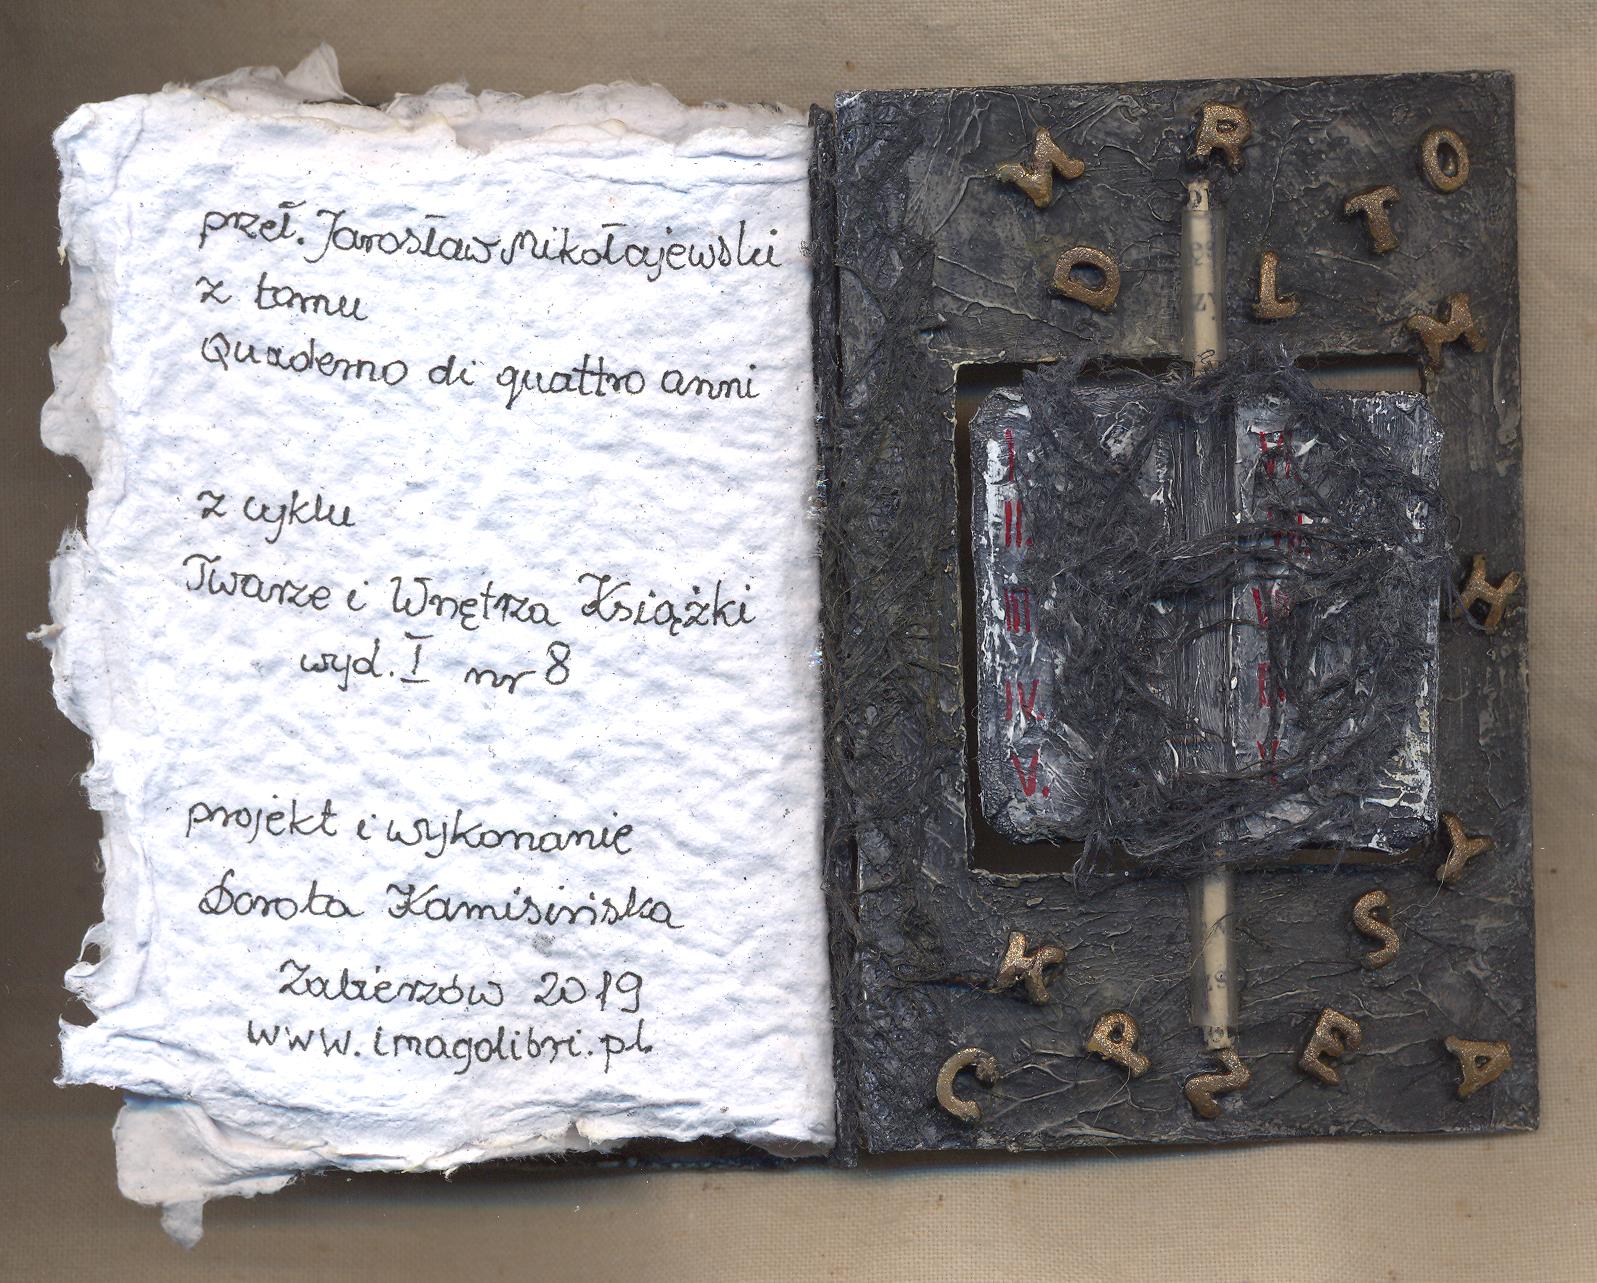 przeł. Jarosław Mikołajewski
z tomu
Quaderno di quattro anni
z cyklu
Twarze i Wnętrza Książki
wyd. I nr 8
projekt i wykonanie
Dorota Kamisińska
Zabierzów 2019
www.imagolibri.pl
R
O
T
D
L
I
II.
III
IV.
V.
S
C
E
A